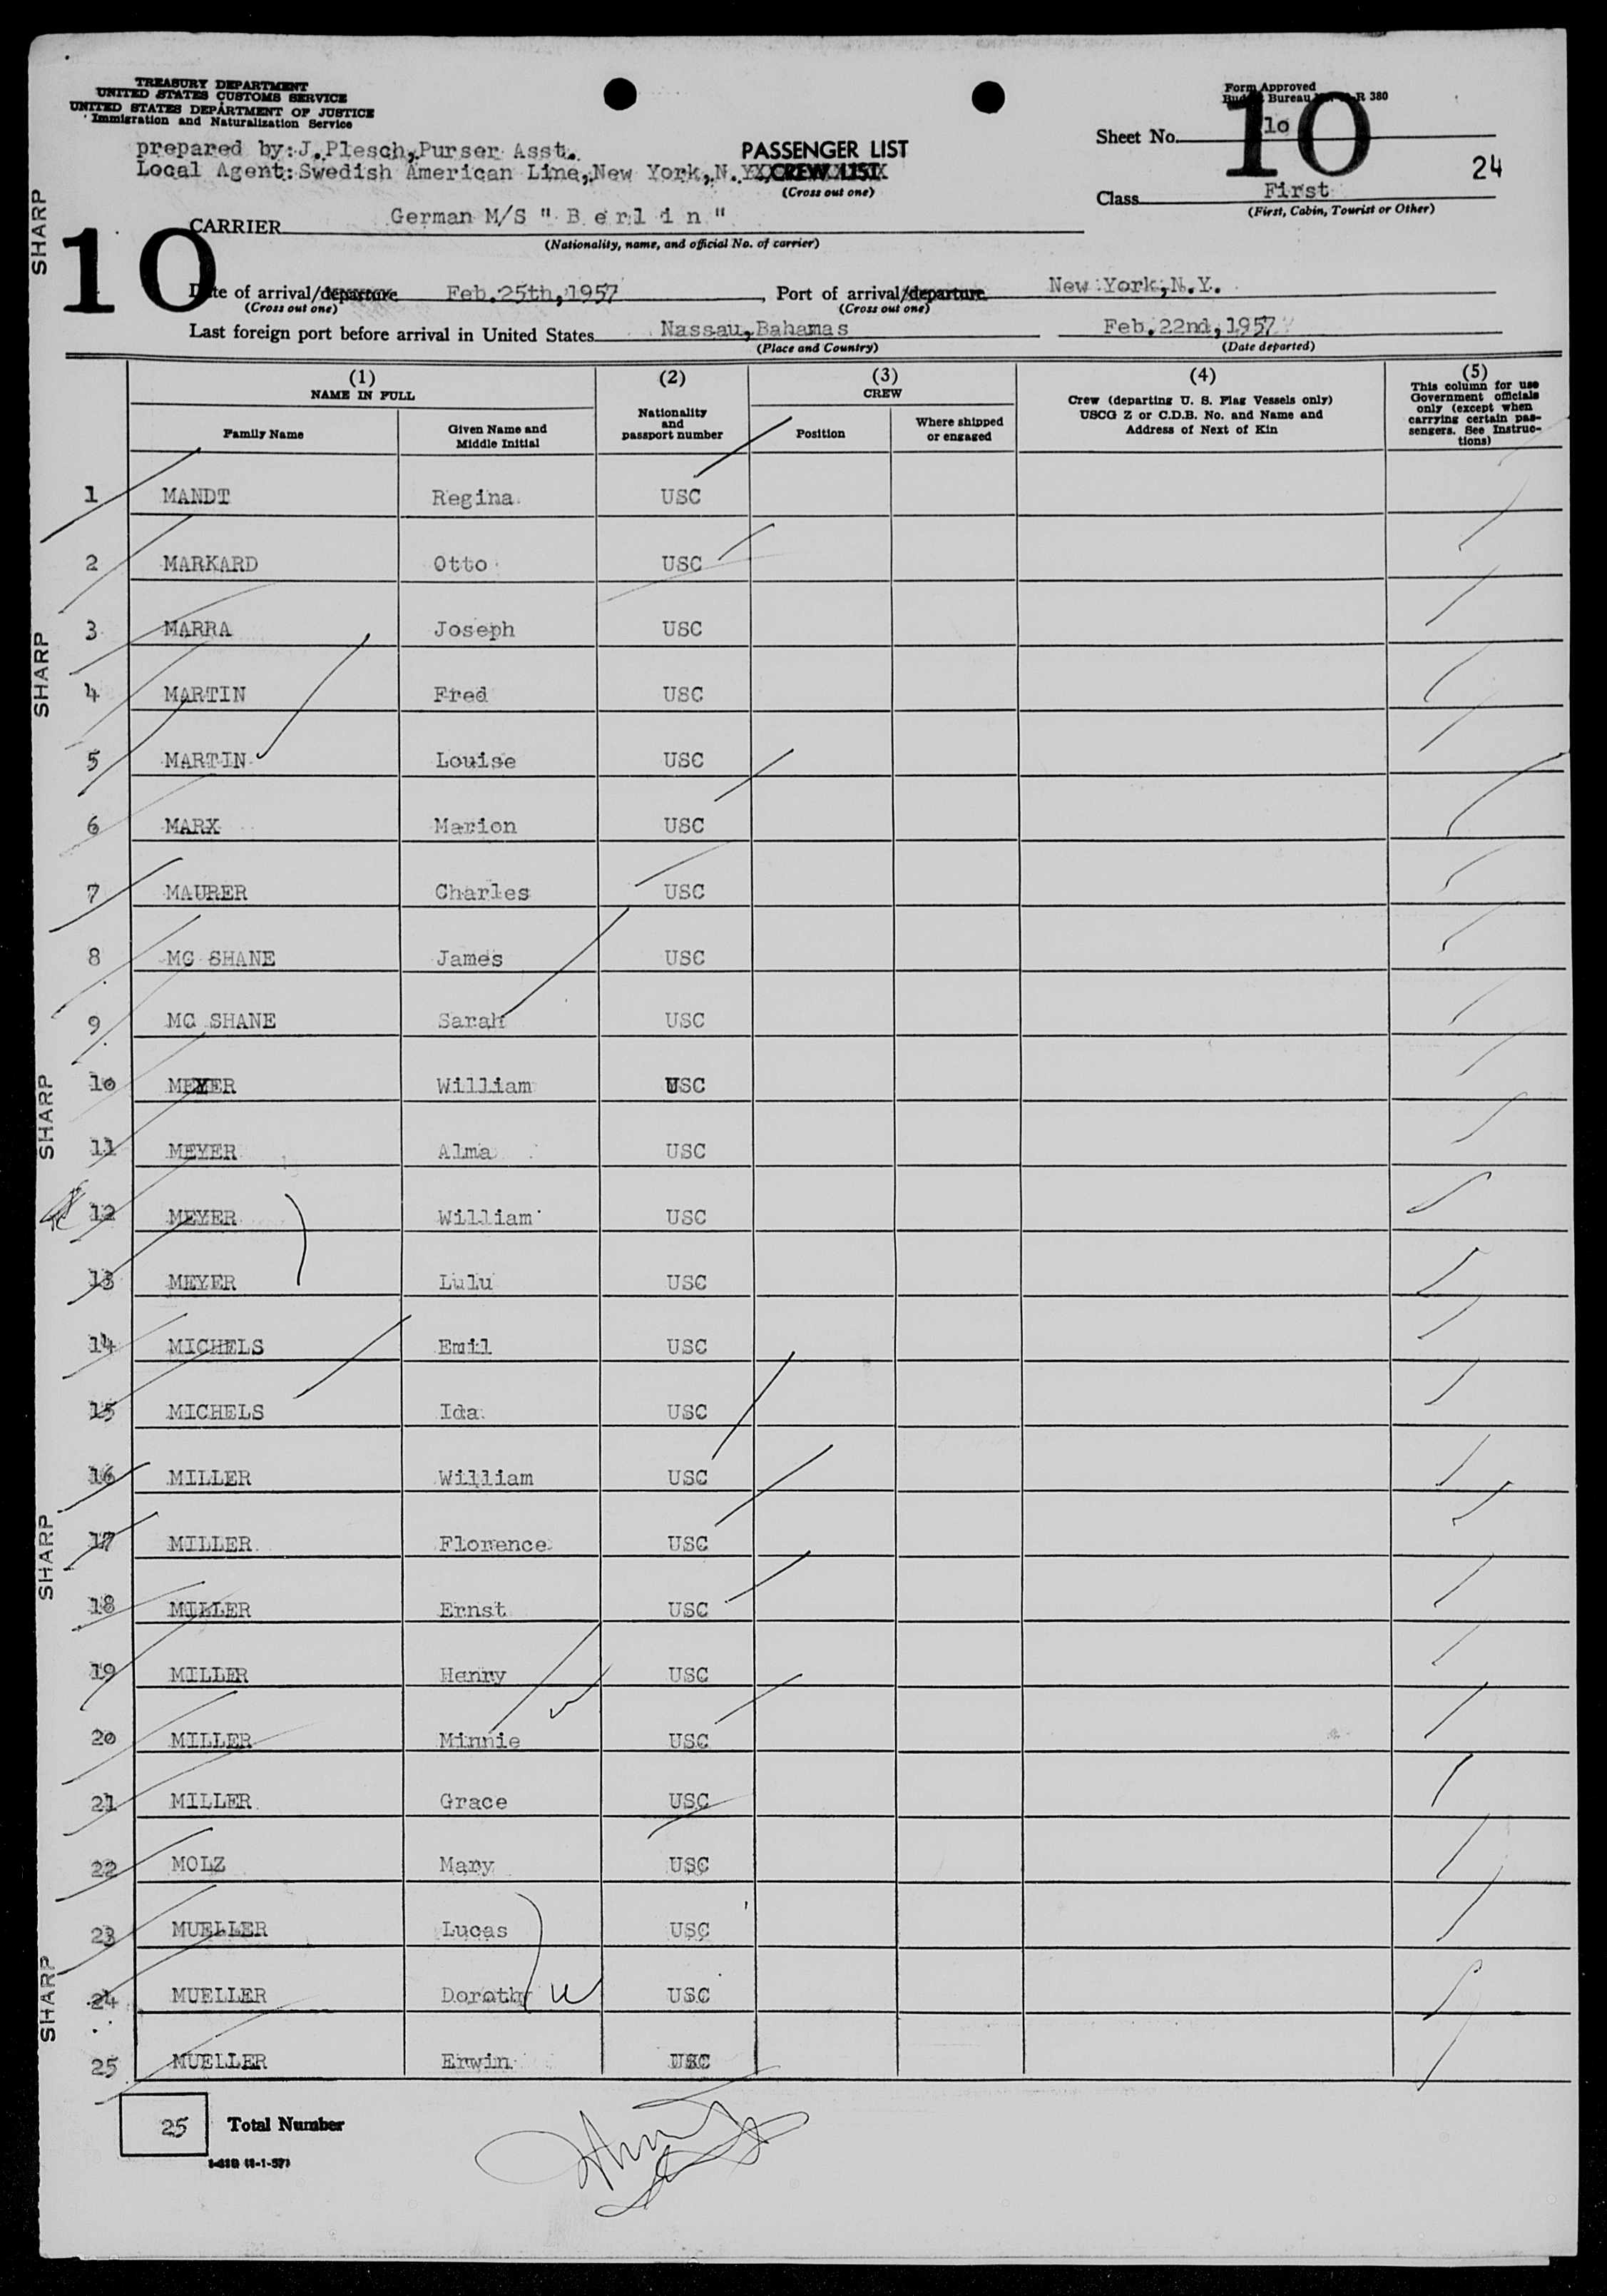 TREASURY DEPARTMENT
UNITED STATES CUSTOMS SERVICE
UNITED STATES DEPARTMENT OF JUSTICE
Immigration and Naturalization Service
Form Approved
Bureau R 380
prepared by:J.Plesch,Purser Asst.
Local Agent:Swedish American Line,New York,N.Y.
PASSENGER LIST
CREW LIST
(Cross out one)
Sheet No. 1o
10
24
Class First
(First, Cabin, Tourist or Other)
CARRIER German M/S " B e r l i n "
(Nationality, name, and official No. of carrier)
10
Date of arrival/departure Feb.25th,1957, Port of arrival/departure New York,N.Y.
(Cross out one) (Cross out one)
Last foreign port before arrival in United States Nassau,Bahamas Feb.22nd,1957
(Place and Country) (Date departed)
(1) NAME IN FULL
Family Name
Given Name and Middle Initial
(2) Nationality and passport number
(3) CREW
Position
Where shipped or engaged
(4) Crew (departing U. S. Flag Vessels only) USCG Z or C.D.B. No. and Name and Address of Next of Kin
(5) This column for use Government officials only (except when carrying certain passengers. See Instructions)
1 MANDT Regina USC
2 MARKARD Otto USC
3 MARRA Joseph USC
4 MARTIN Fred USC
5 MARTIN Louise USC
6 MARX Marion USC
7 MAURER Charles USC
8 MC SHANE James USC
9 MC SHANE Sarah USC
1o MEYER William USC
11 MEYER Alma USC
12 MEYER William USC
13 MEYER Lulu USC
14 MICHELS Emil USC
15 MICHELS Ida USC
16 MILLER William USC
17 MILLER Florence USC
18 MILLER Ernst USC
19 MILLER Henry USC
2o MILLER Minnie USC
21 MILLER Grace USC
22 MOLZ Mary USC
23 MUELLER Lucas USC
24 MUELLER Dorothy USC
25 MUELLER Erwin USC
25 Total Number
SHARP
SHARP
SHARP
SHARP
SHARP